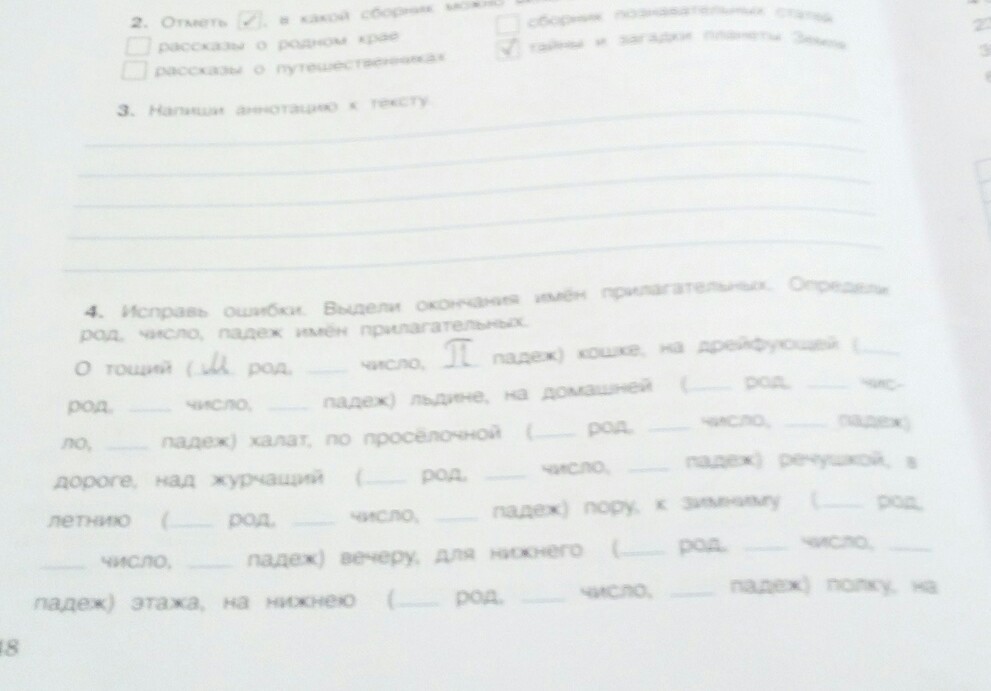 2. Отметь ✓, в какой сборник можно
рассказы о родном крае
сборник познавательных статей
рассказы о путешественниках
✓ тайны и загадки планеты Земля
3. Напиши аннотацию к тексту.
4. Исправь ошибки. Выдели окончания имён прилагательных. Определи
род, число, падеж имён прилагательных.
О тощий (м род, ___ число, П падеж) кошке, на дрейфующей (___
род, ___ число, ___ падеж) льдине, на домашней (___ род, ___ чис-
ло, ___ падеж) халат, по просёлочной (___ род, ___ число, ___ падеж)
дороге, над журчащий (___ род, ___ число, ___ падеж) речушкой, в
летнию (___ род, ___ число, ___ падеж) пору, к зимниму (___ род,
___ число, ___ падеж) вечеру, для нижнего (___ род, ___ число, ___
падеж) этажа, на нижнею (___ род, ___ число, ___ падеж) полку, на